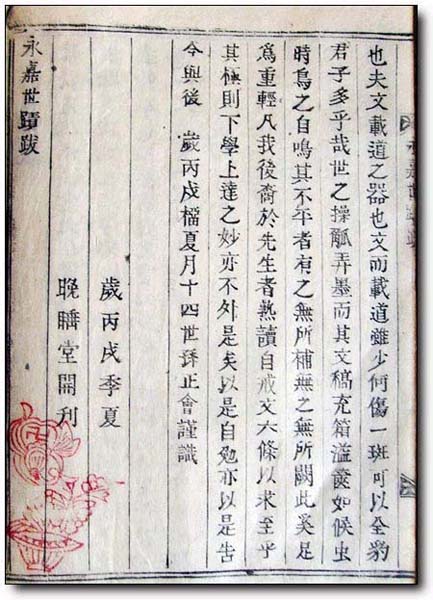 永嘉世
也夫文載道之器也文而載道雖少何傷一斑可以全豹
君子多乎哉世之操觚弄墨而其文稿充箱溢篋如候虫
時鳥之自鳴其不平者有之無所補無之無所闕此奚足
爲重輕凡我後裔於先生者熟讀自戒文六條以求至乎
其極則下學上達之妙亦不外是矣以是自勉亦以是告
今與後 歲丙戌榴夏月十四世孫正會謹識
歲丙戌季夏
晩堂開刊
永嘉世蹟跋